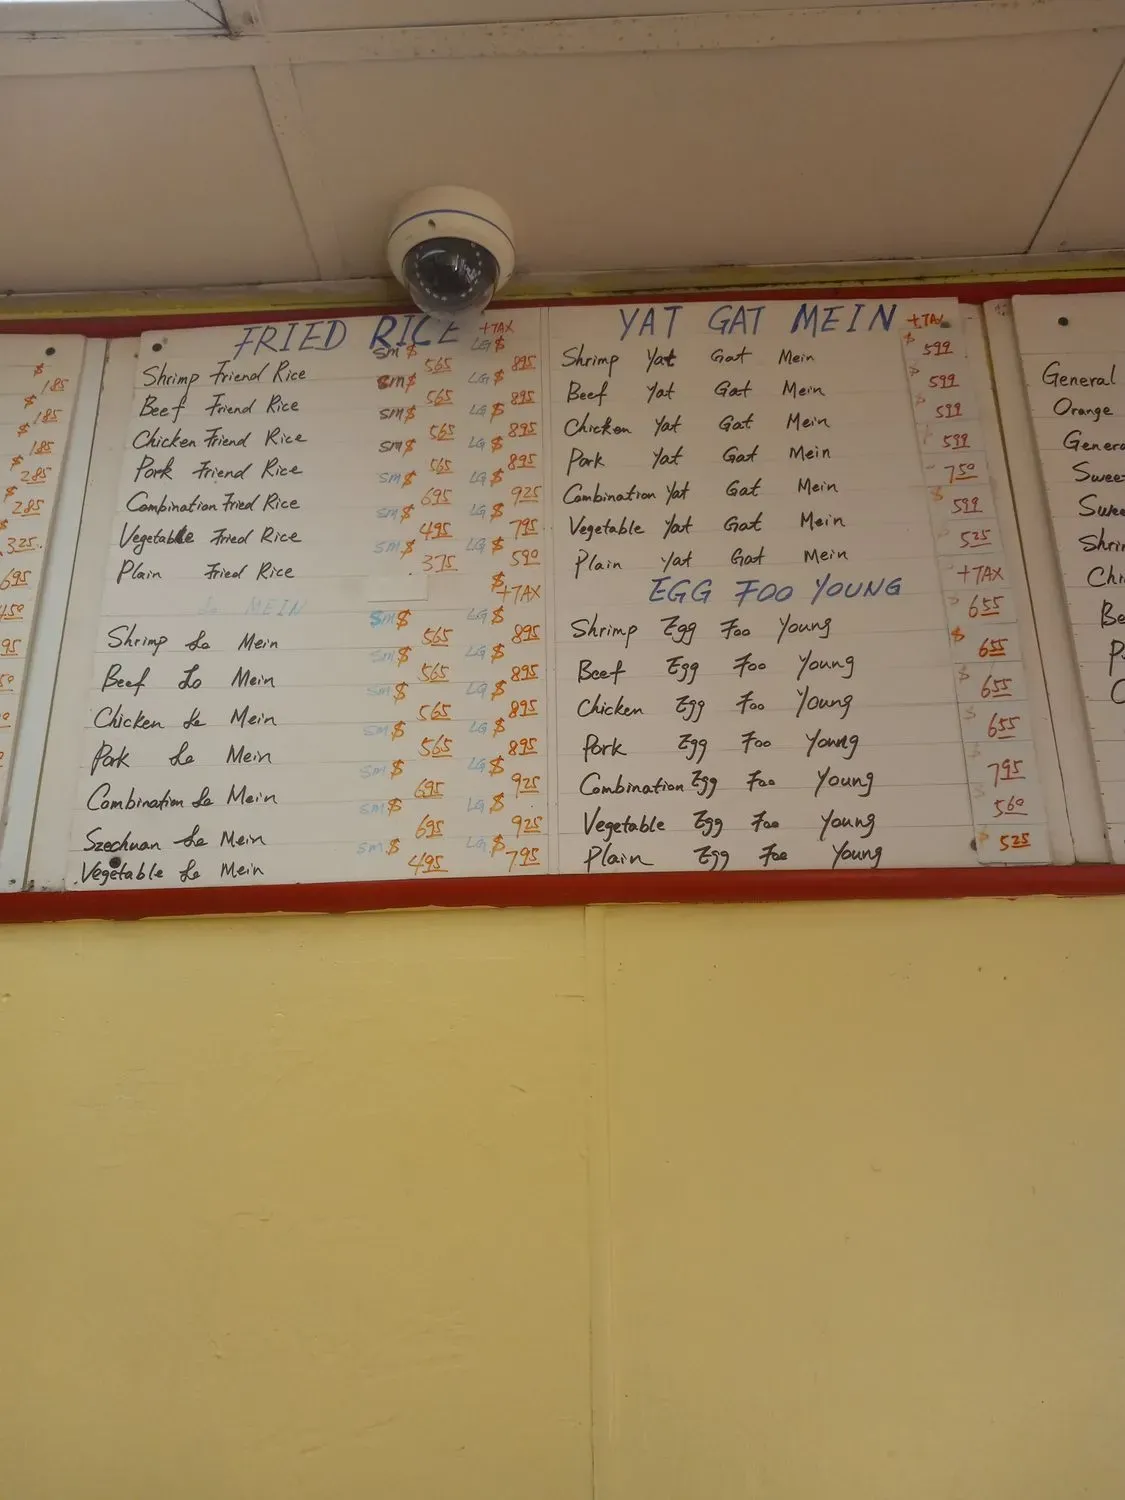 $
185
$
185
$
185
$
285
$
285
$
325
695
450
95
FRIED RICE +TAX
Shrimp Friend Rice SM $ 565 LG $ 895
Beef Friend Rice SM $ 565 LG $ 895
Chicken Friend Rice SM $ 565 LG $ 895
Pork Friend Rice SM $ 565 LG $ 895
Combination Fried Rice SM $ 695 LG $ 925
Vegetable Fried Rice SM $ 495 LG $ 795
Plain Fried Rice SM $ 375 LG $ 590
Lo MEIN $ +TAX
Shrimp Lo Mein SM $ 565 LG $ 895
Beef Lo Mein SM $ 565 LG $ 895
Chicken Lo Mein SM $ 565 LG $ 895
Pork Lo Mein SM $ 565 LG $ 895
Combination Lo Mein SM $ 695 LG $ 925
Szechuan Lo Mein SM $ 695 LG $ 925
Vegetable Lo Mein SM $ 495 LG $ 795
YAT GAT MEIN +TAX
Shrimp Yat Gat Mein $ 599
Beef Yat Gat Mein $ 599
Chicken Yat Gat Mein $ 599
Pork Yat Gat Mein $ 599
Combination Yat Gat Mein 750
Vegetable Yat Gat Mein $ 599
Plain Yat Gat Mein 525
EGG FOO YOUNG +TAX
Shrimp Egg Foo Young $ 655
Beef Egg Foo Young $ 655
Chicken Egg Foo Young $ 655
Pork Egg Foo Young $ 655
Combination Egg Foo Young $ 795
Vegetable Egg Foo Young $ 560
Plain Egg Foo Young $ 525
General
Orange
Genera
Swee
Swee
Shri
Chi
Be
P
C